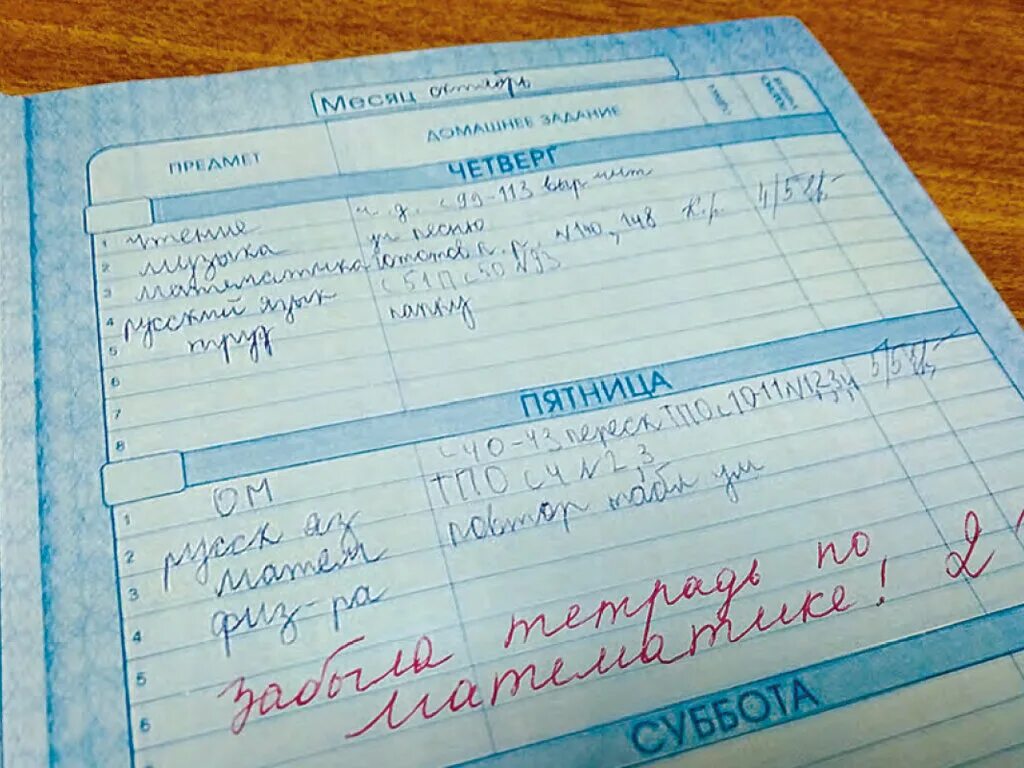 Месяц октябрь
ПРЕДМЕТ ДОМАШНЕЕ ЗАДАНИЕ
ЧЕТВЕРГ
1 чтение ч. д. с 99-113 выр чит
2 музыка уч песню
3 математика к.р., N140, 148 К.р. 4/5
4 русский язык с 51 П с 50 N93
5 труд папку
6
7
8
ПЯТНИЦА
1 ОМ с 40-43 переск ТПО с 10-11 N1,2,3,4 5/5
2 русск яз ТПО с 4 N 2, 3
3 матем повтор табл ум
4 физ-ра
5 забыла тетрадь по
6 математике! 2
СУББОТА